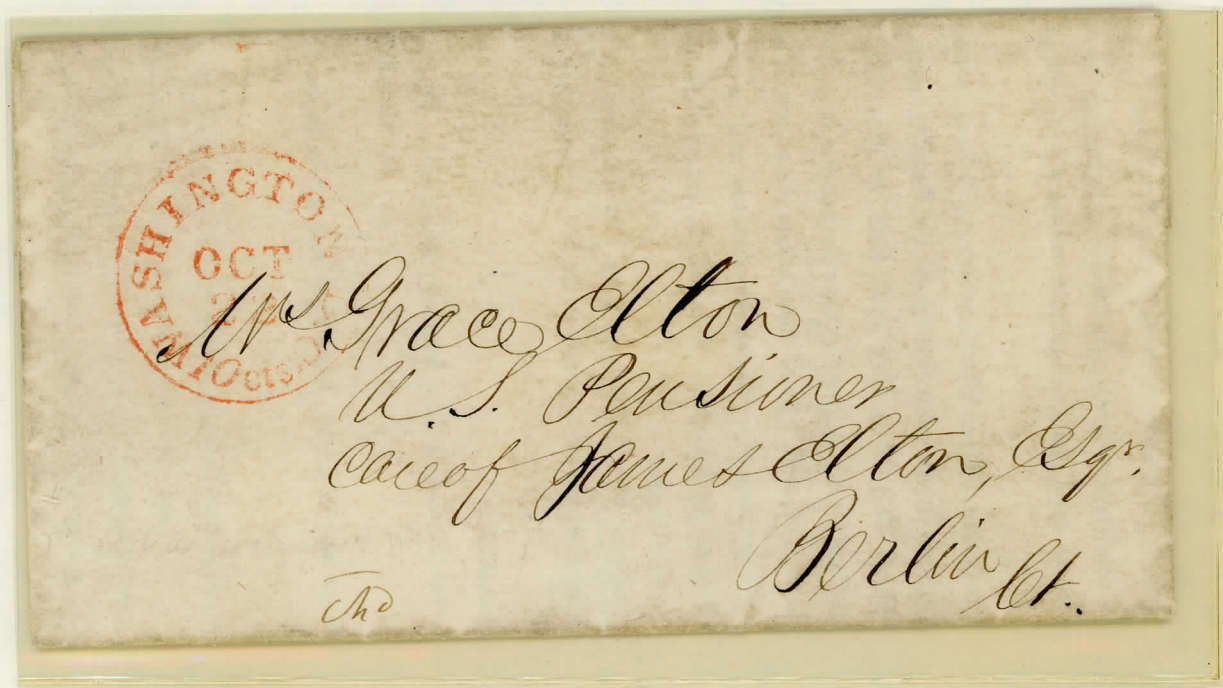 WASHINGTON
OCT
10 cts.
Mrs. Grace Elton
U. S. Pensioner
care of James Elton, Esqr.
Berlin
Ct.